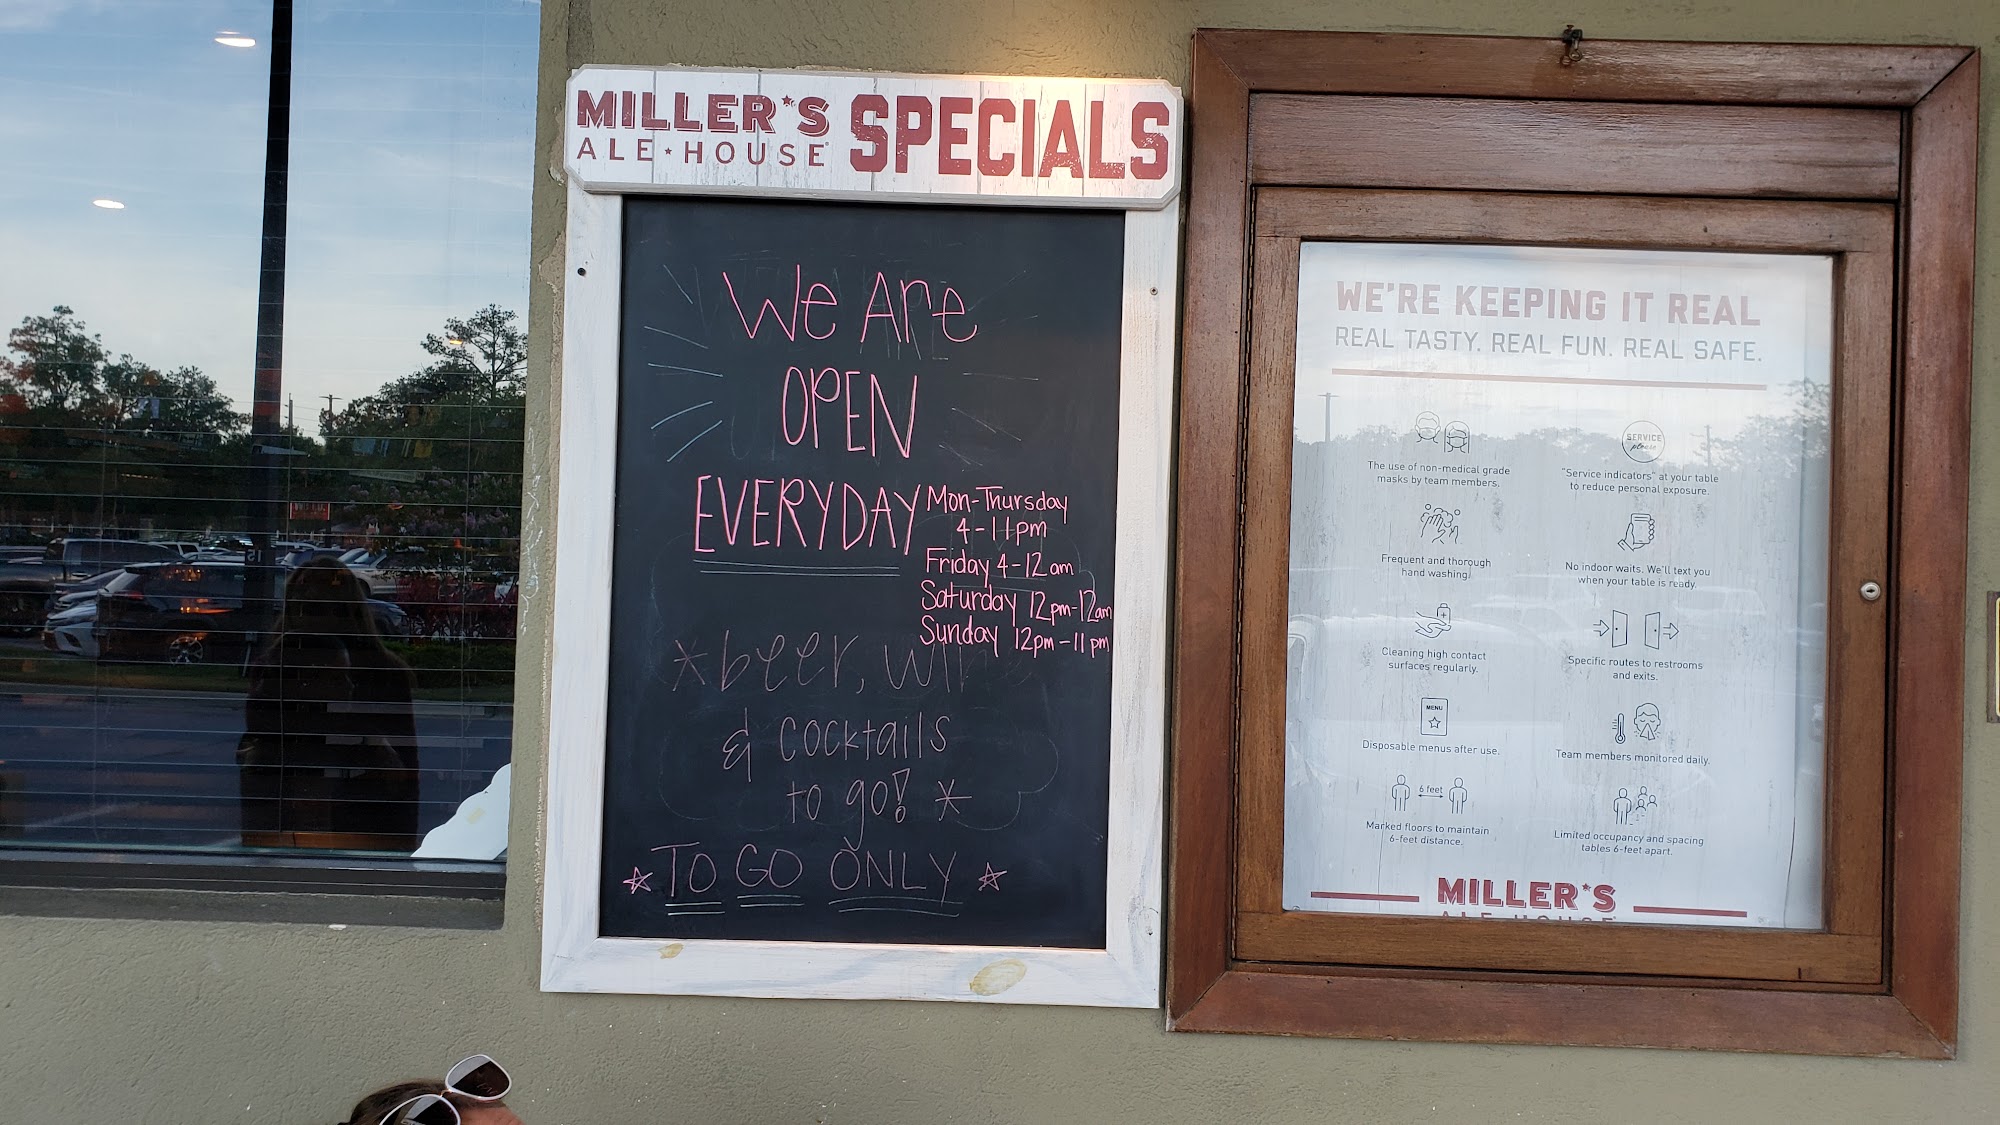 MILLER'S
ALE HOUSE
SPECIALS
We Are
OPEN
EVERYDAY
Mon-Thursday
4-11pm
Friday 4-12am
Saturday 12pm-12am
Sunday 12pm-11pm
*beer, wine
& cocktails
to go! *
TO GO ONLY
WE'RE KEEPING IT REAL
REAL TASTY. REAL FUN. REAL SAFE.
The use of non-medical grade
masks by team members.
SERVICE
please
"Service indicators" at your table
to reduce personal exposure.
Frequent and thorough
hand washing.
No indoor waits. We'll text you
when your table is ready.
Cleaning high contact
surfaces regularly.
Specific routes to restrooms
and exits.
MENU
Disposable menus after use.
Team members monitored daily.
6 feet
Marked floors to maintain
6-feet distance.
Limited occupancy and spacing
tables 6-feet apart.
MILLER'S
ALE HOUSE